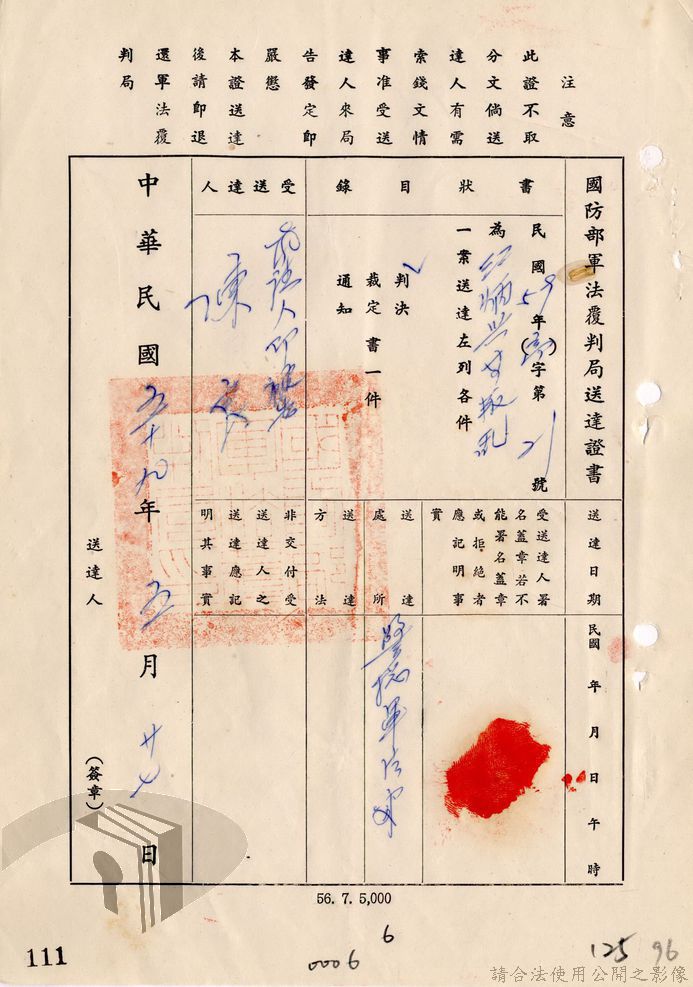 注意
此證不取
分文倘送
達人有需
索錢文情
事准受送
達人來局
告發定即
嚴懲
本證送達
後請即退
還軍法覆
判局
國防部軍法覆判局送達證書
書狀目錄
民國59年( )字第21號
為江炳興等叛亂
一案送達左列各件
判決
裁定書一件
通知
受送達人
陳良
送達日期
民國 年 月 日 午 時
受送達人署
名蓋章若不
能署名蓋章
或拒絕者
應記明事
實
送達處所
警總軍法處
送達方法
非交付受
送達人之
送達應記
明其事實
中華民國五十九年五月廿七日
送達人
(簽章)
56. 7. 5,000
6
0006
111
125 96
請合法使用公開之影像